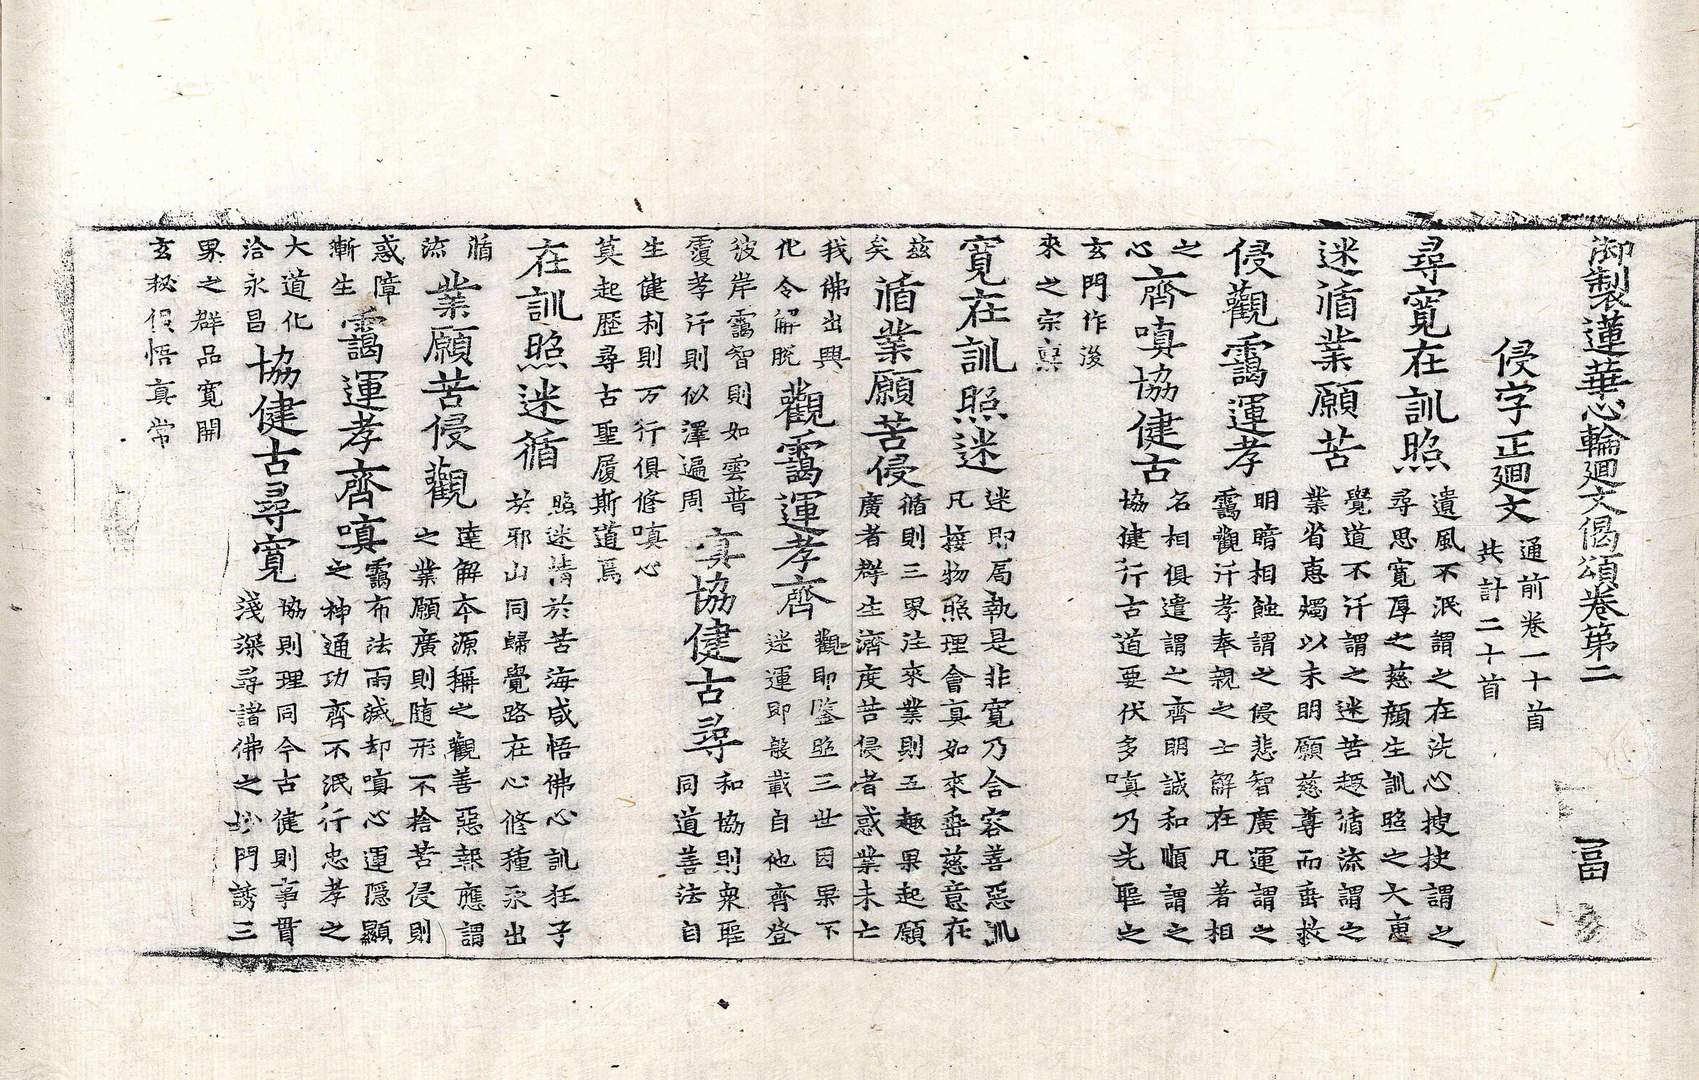 御製蓮華心輪廻文偈頌卷第二 富
侵字正廻文
通前卷一十首
共計二十首
尋寬在訓照
遺風不泯謂之在洗心搜抉謂之
尋思寬厚之慈顏生訓照之大惠
迷循業願苦
覺道不汗謂之迷苦趣循流謂之
業省惠燭以未明願慈尊而垂救
侵觀靄運孝
明暗相蝕謂之侵悲智廣運謂之
靄觀汗孝奉親之士解在凡著相
之
心
齊嗔協健古
名相俱遣謂之齊明誠和順謂之
協揵行古道要伏多嗔乃先聖之
玄門作浚
來之宗禀
寬在訓照迷
迷即局執是非寬乃含容善惡訓
凡接物照理會真如來垂慈意在
茲
矣
循業願苦侵
循則三界注來業則五趣果起願
廣者群生濟度苦侵者惑業未亡
我佛出興
化令解脫
觀靄運孝齊
觀即鑒照三世因果下
迷運即般載自他齊登
彼岸靄智則如雲普
霞孝汗則似澤遍周
嗔協健古尋
和協則衆聖
同道善法自
生健利則万行俱修嗔心
莫起歷尋古聖履斯道焉
在訓照迷循
照迷情於苦海咸悟佛心訓狂子
於邪山同歸覺路在心修種永出
循
流
業願苦侵觀
達解本源稱之觀善惡報應謂
之業願廣則随形不捨苦侵則
惑障
漸生
靄運孝齊嗔
靄布法雨滅却嗔心運隱顯
之神通功齊不泯行忠孝之
大道化
洽永昌
協健古尋寬
協則理同今古健則事貫
淺深尋諸佛之妙門誘三
果之群品寬開
玄秘俱悟真常